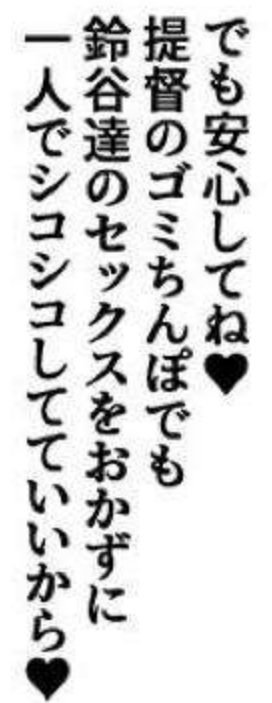 でも安心してね♥
提督のゴミちんぽでも
鈴谷達のセックスをおかずに
一人でシコシコしてていいから♥